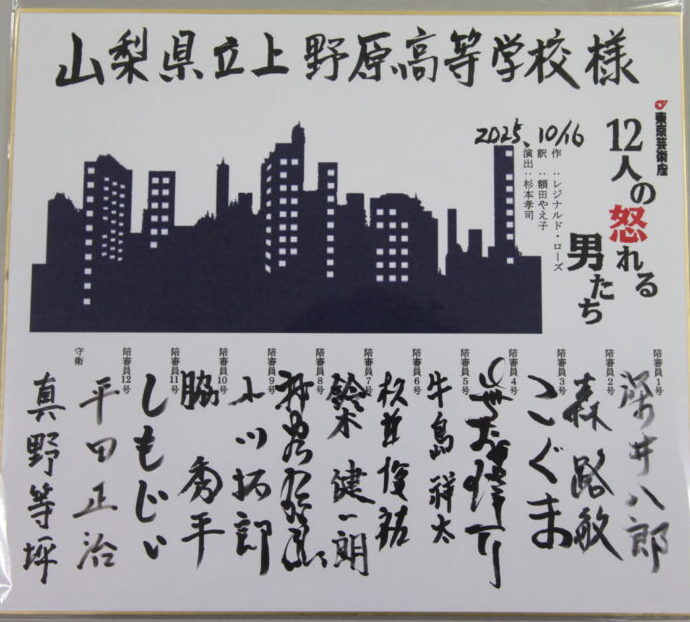 山梨県立上野原高等学校 様
2025.10/16
東京芸術座
12人の怒れる男たち
作：レジナルド・ローズ
訳：額田やえ子
演出：杉本孝司
陪審員1号
深井八郎
陪審員2号
森 路敏
陪審員3号
こぐま
陪審員4号
陪審員5号
牛島祥太
陪審員6号
俊祐
陪審員7号
鈴木健一朗
陪審員8号
陪審員9号
小川拓郎
陪審員10号
脇 秀平
陪審員11号
しもじい
陪審員12号
平田正治
守衛
真野等坪